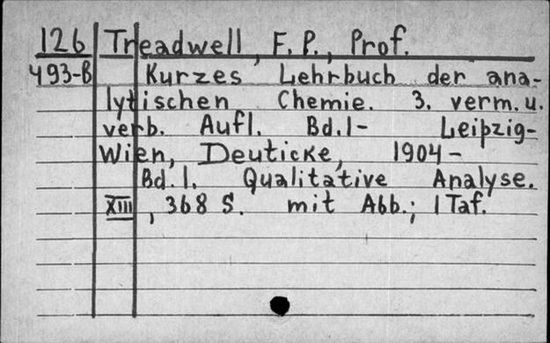 126 Treadwell, F. P., Prof.
493-B Kurzes Lehrbuch der ana-
lytischen Chemie. 3. verm. u.
verb. Aufl. Bd. 1- Leipzig-
Wien, Deuticke, 1904-
Bd. 1. Qualitative Analyse.
XIII, 368 S. mit Abb.; 1 Taf.